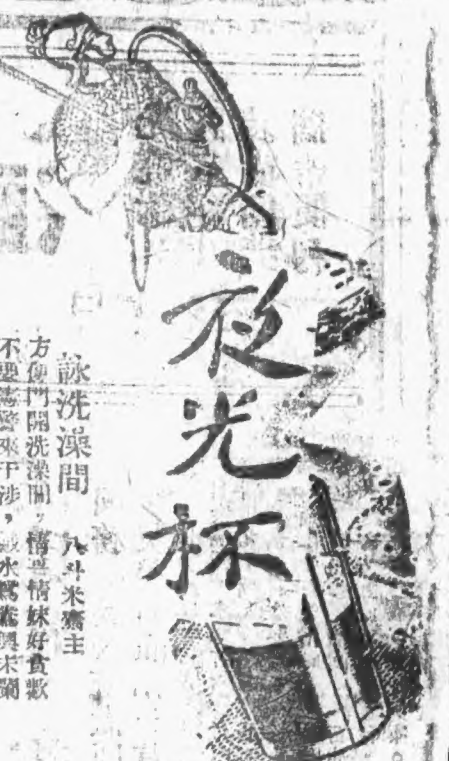 夜光杯
詠洗澡間 八斗米齋主
方便門開洗澡間,情哥情妹好貪歡
不要鴛鴦來干涉,水鴛鴦興未闌